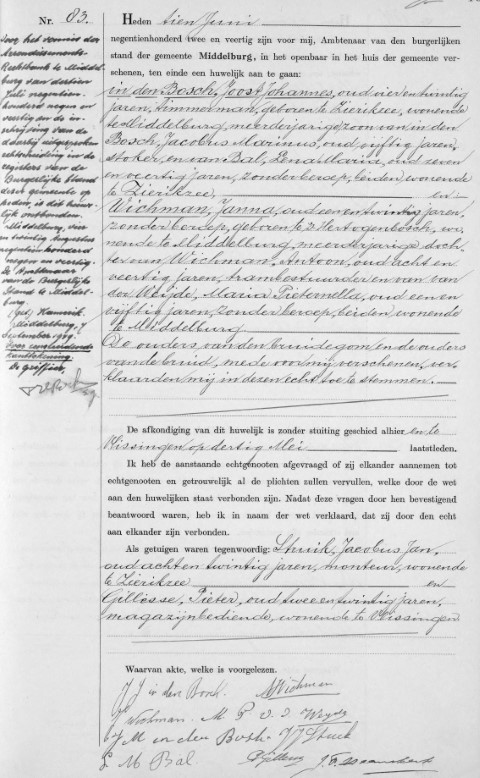 Nr. 83.
Door het vonnis der
Arrondissements-
Rechtbank te Middel-
burg van dertien
Juli negentien-
honderd negen en
veertig en de in-
schrijving van de
daarbij uitgesproken
echtscheiding in de
registers van de
Burgelijke Stand
dezer gemeente op
heden, is dit huwe-
lijk ontbonden.
Middelburg, van
twintig Augustus
negentien honderd
negen en veertig.
De Ambtenaar
van de Burgelijke
Stand te Middel-
burg.
(get)
Middelburg, 7
September 1949.
Voor eensluidende
kantteekening
De griffier,
Heden tien Juni
negentienhonderd twee en veertig zijn voor mij, Ambtenaar van den burgerlijken
stand der gemeente Middelburg, in het openbaar in het huis der gemeente ver-
schenen, ten einde een huwelijk aan te gaan:
in den Bosch, Joost Johannes, oud vier en twintig
jaren, timmerman, geboren te Zierikzee, wonende
te Middelburg, meerderjarige zoon van in den
Bosch, Jacobus Marinus, oud vijftig jaren,
stoker, en van Bal, Lena Marina, oud zeven
en veertig jaren, zonder beroep, beiden wonende
te Zierikzee en
Wichman, Janna, oud een en twintig jaren,
zonder beroep, geboren te 's Hertogenbosch, wo-
nende te Middelburg, meerderjarige doch-
ter van Wichman, Antoon, oud acht en
veertig jaren, trambestuurder en van van
der Weijde, Maria Pieternella, oud een en
vijftig jaren, zonder beroep, beiden wonende
te Middelburg
De ouders van den bruidegom en de ouders
van de bruid, mede voor mij verschenen, ver-
klaarden mij in dezen echt toe te stemmen.
De afkondiging van dit huwelijk is zonder stuiting geschied alhier en te
Vlissingen op dertig Mei laatstleden.
Ik heb de aanstaande echtgenooten afgevraagd of zij elkander aannemen tot
echtgenooten en getrouwelijk al de plichten zullen vervullen, welke door de wet
aan den huwelijken staat verbonden zijn. Nadat deze vragen door hen bevestigend
beantwoord waren, heb ik in naam der wet verklaard, dat zij door den echt
aan elkander zijn verbonden.
Als getuigen waren tegenwoordig: Stuik, Jacobus Jan,
oud acht en twintig jaren, monteur, wonende
te Zierikzee en
Gillisse, Pieter, oud twee en twintig jaren,
magazijnbediende, wonende te Vlissingen
Waarvan akte, welke is voorgelezen.
J J in den Bosch. J Wichman
Wichman. M P v. d. Weyde
J M in den Bosch J J Stuik
L M Bal. P Gillisse